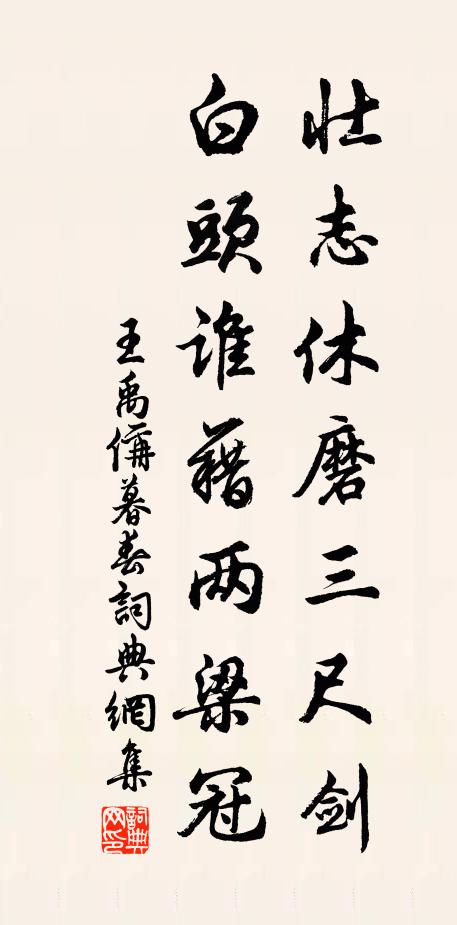 壮志休磨三尺剑
白頭谁藉两梁冠
王禹偁暮春詞典網集
詞典网印